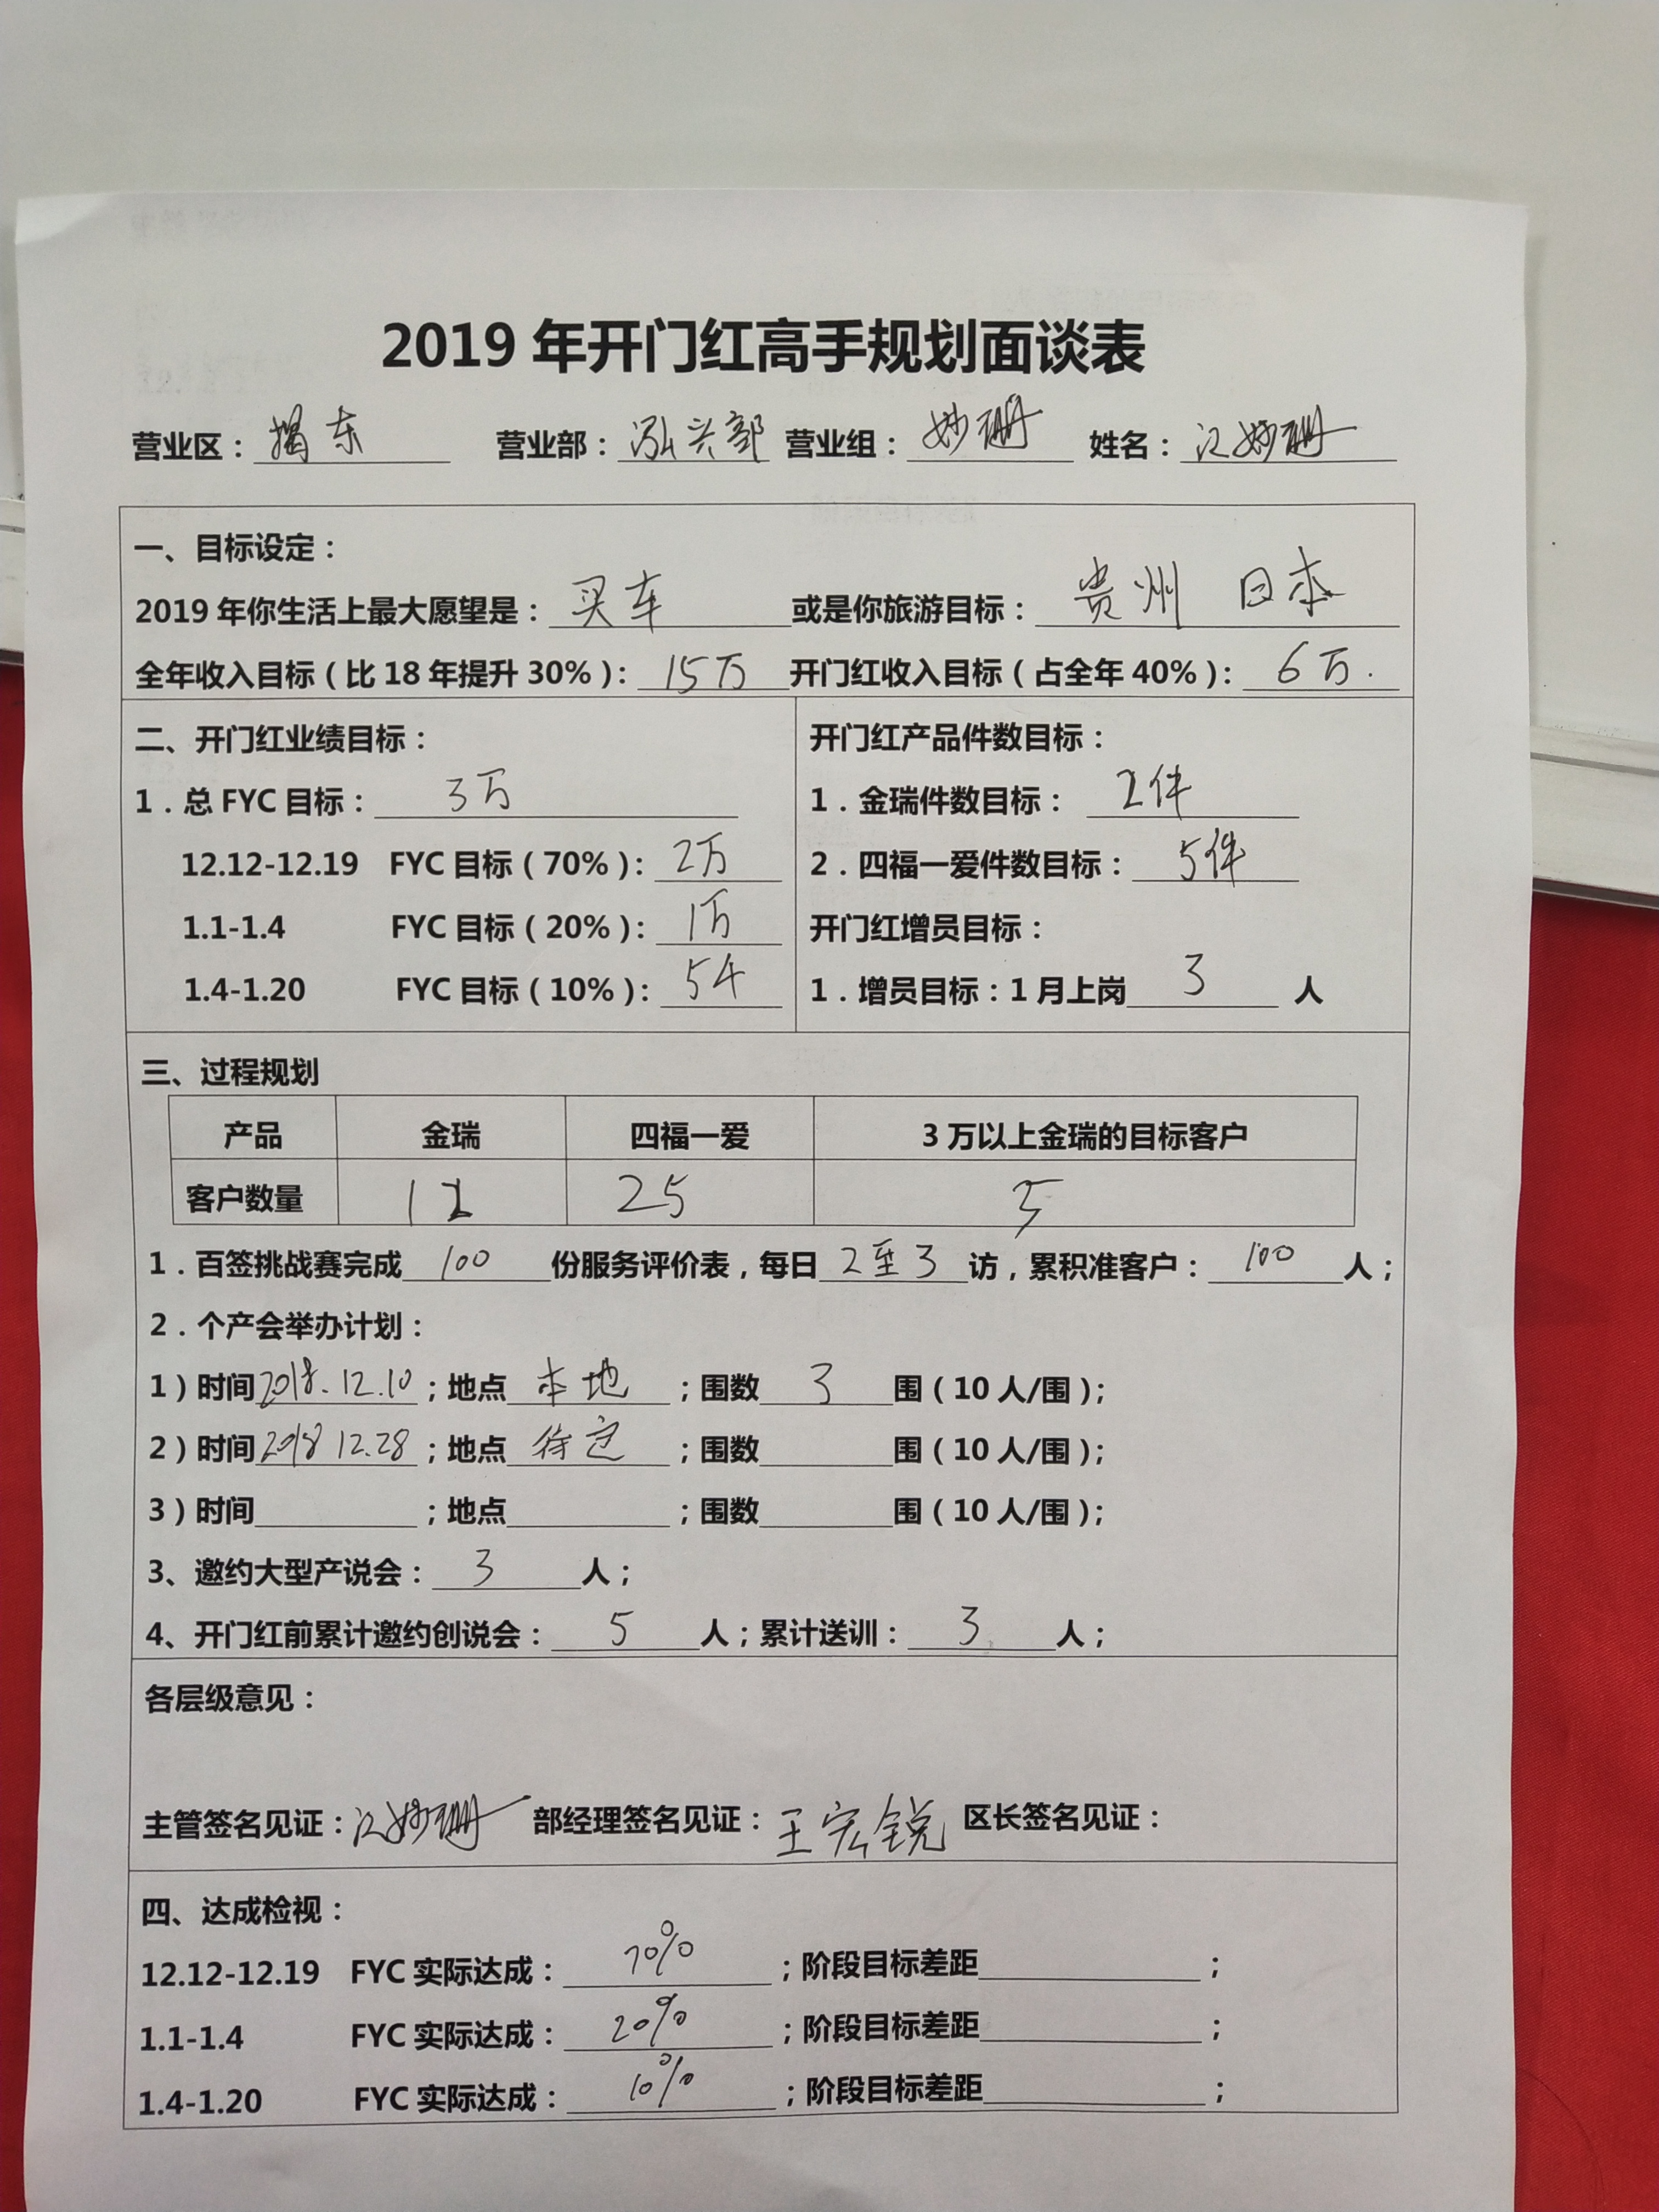 2019 年开门红高手规划面谈表
营业区：揭东 营业部：泓兴部 营业组：妙珊 姓名：江妙珊
一、目标设定：
2019 年你生活上最大愿望是：买车 或是你旅游目标：贵州 日本
全年收入目标（比 18 年提升 30%）：15万 开门红收入目标（占全年 40%）：6万.
二、开门红业绩目标：
1．总 FYC 目标：3万
12.12-12.19 FYC 目标（70%）：2万
1.1-1.4 FYC 目标（20%）：1万
1.4-1.20 FYC 目标（10%）：5千
开门红产品件数目标：
1．金瑞件数目标：2件
2．四福一爱件数目标：5件
开门红增员目标：
1．增员目标：1 月上岗 3 人
三、过程规划
产品 金瑞 四福一爱 3 万以上金瑞的目标客户
客户数量 12 25 5
1．百签挑战赛完成 100 份服务评价表，每日 2至3 访，累积准客户：100 人；
2．个产会举办计划：
1）时间 2018.12.10；地点 本地；围数 3 围（10 人/围）；
2）时间 2018 12.28；地点 待定；围数 围（10 人/围）；
3）时间 ；地点 ；围数 围（10 人/围）；
3、邀约大型产说会：3 人；
4、开门红前累计邀约创说会：5 人；累计送训：3 人；
各层级意见：
主管签名见证：江妙珊 部经理签名见证：王宏锐 区长签名见证：
四、达成检视：
12.12-12.19 FYC 实际达成：70%；阶段目标差距 ；
1.1-1.4 FYC 实际达成：20%；阶段目标差距 ；
1.4-1.20 FYC 实际达成：10%；阶段目标差距 ；